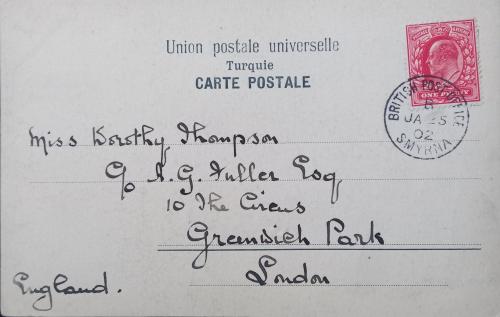 Union postale universelle
Turquie
CARTE POSTALE
ONE PENNY
BRITISH POST OFFICE
JA 25
02
SMYRNA
Miss Dorothy Thompson
c/o A. G. Fuller Esq
10 The Circus
Greenwich Park
London
England.